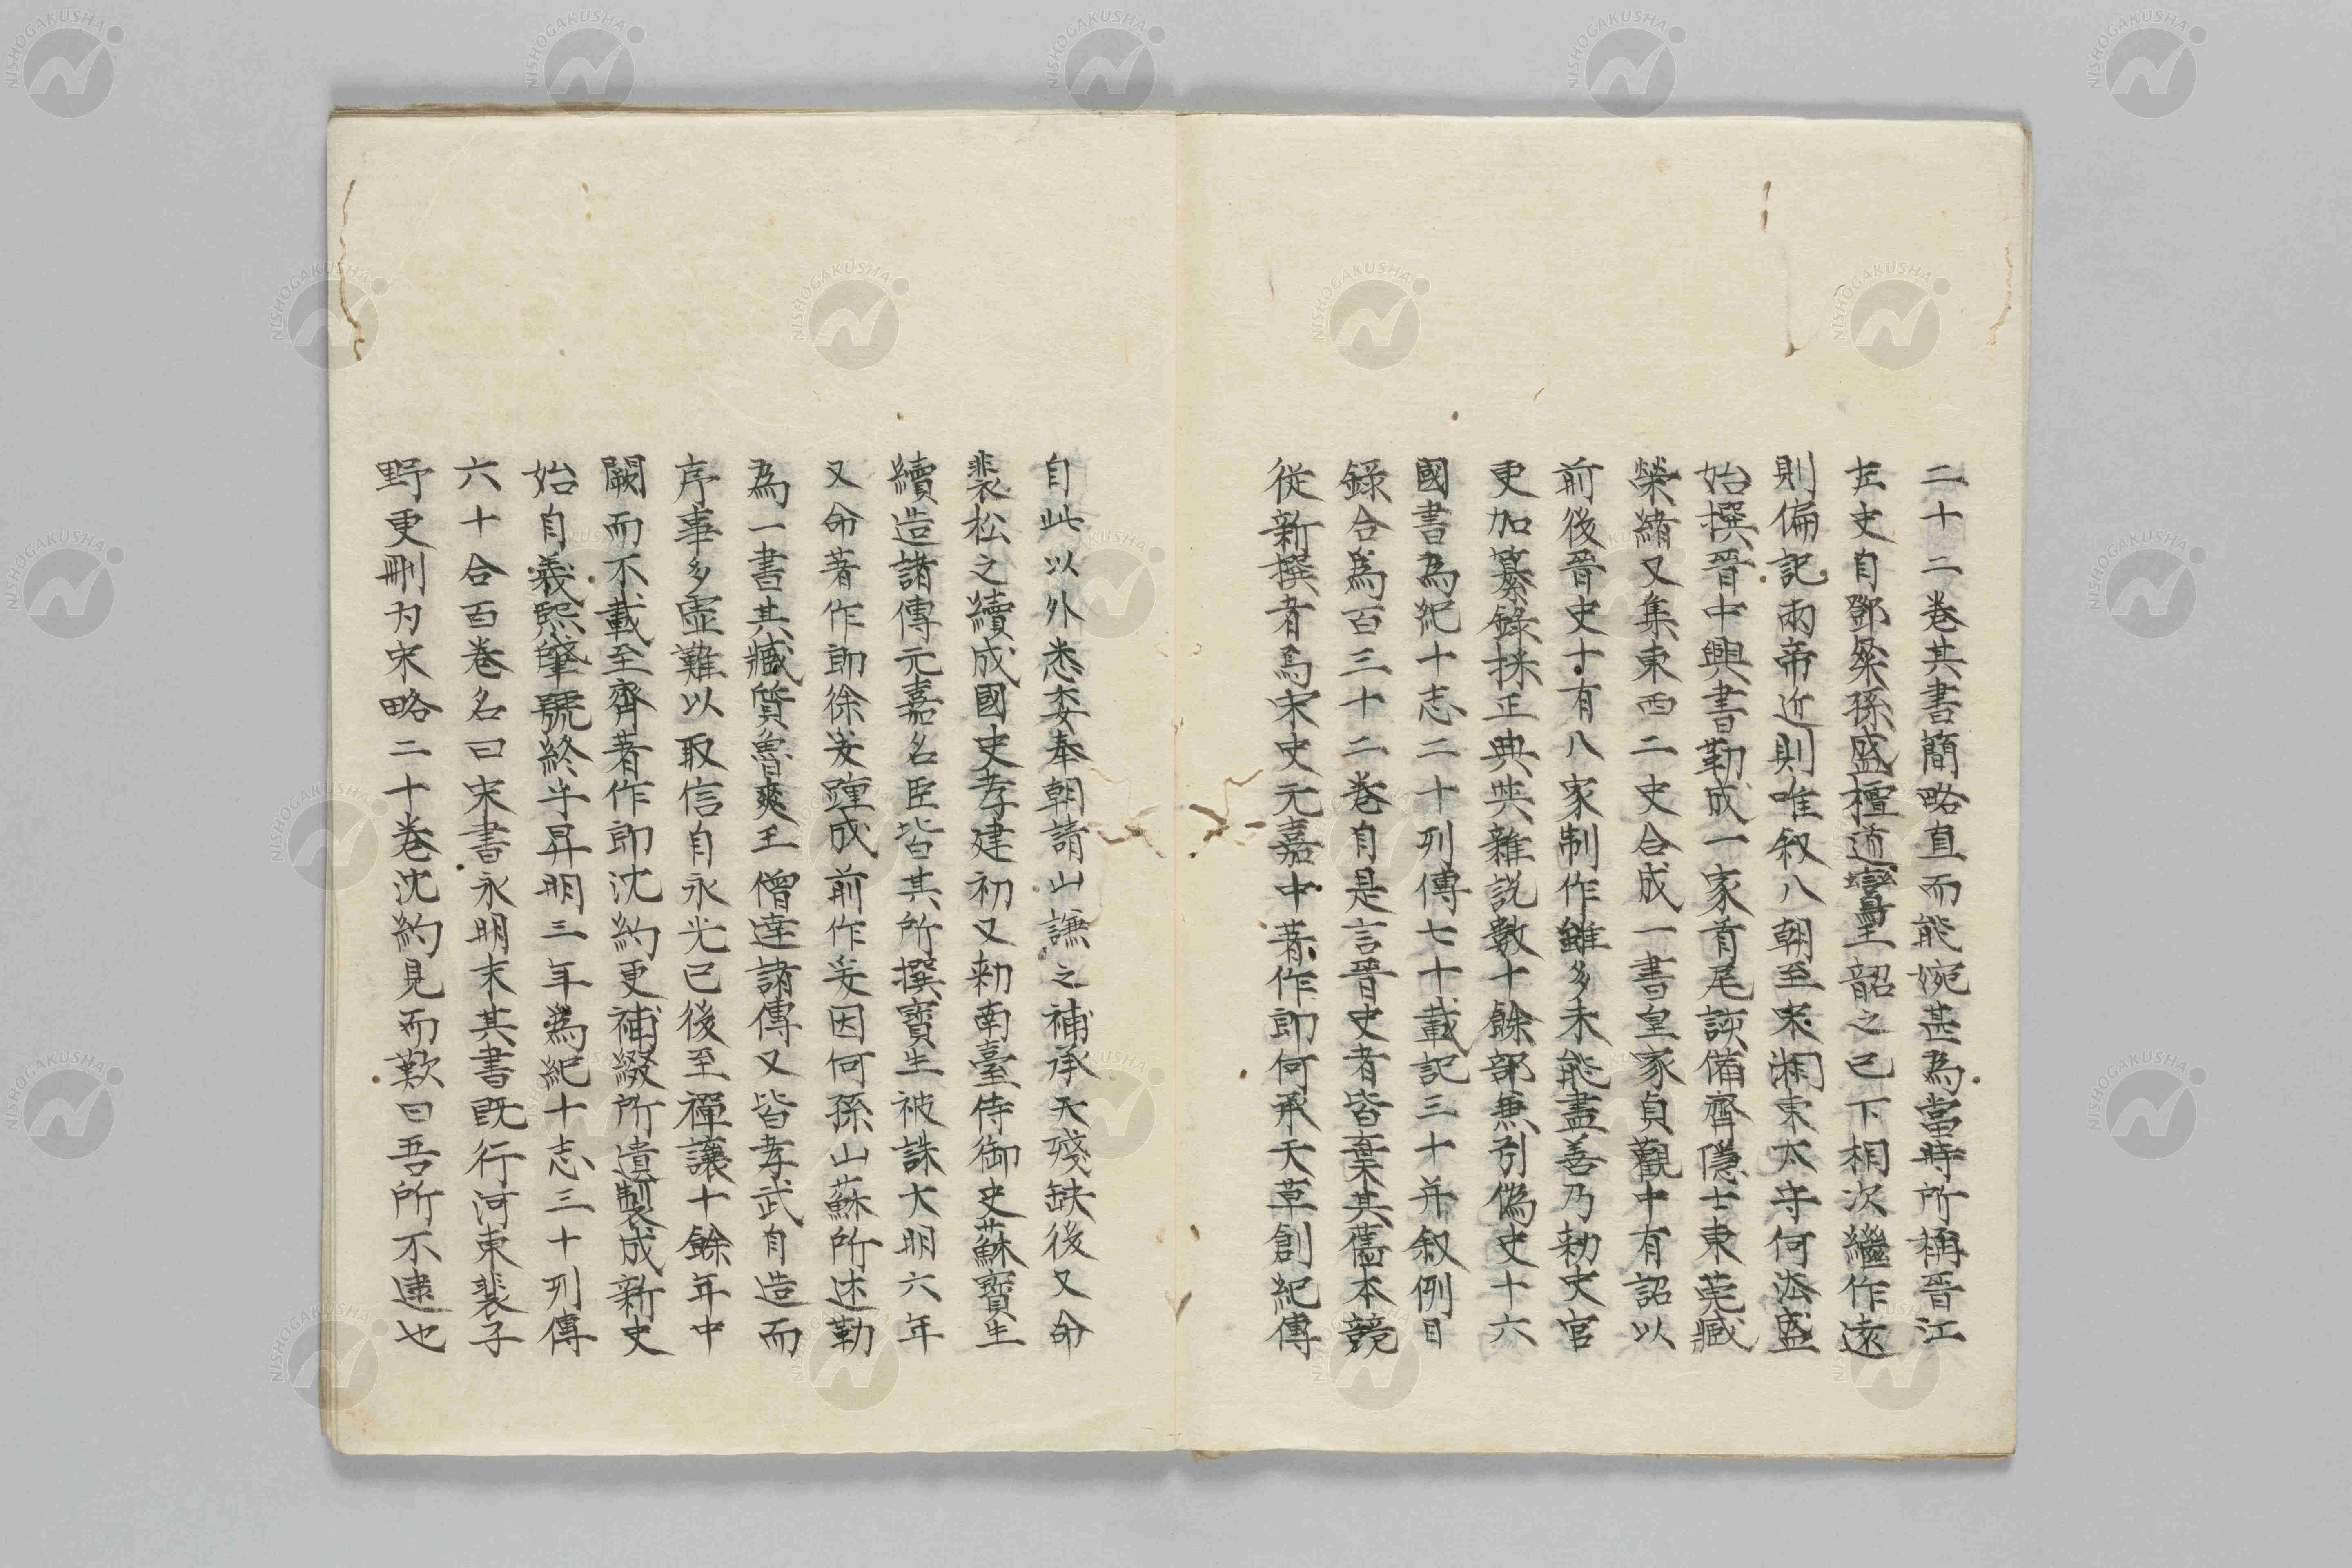 二十二卷其書簡略直而能婉甚為當時所稱晉江
左史自鄧粲孫盛檀道鸞王韶之已下相次繼作遠
則偏記兩帝近則唯叙八朝至宋湘東太守何法盛
始撰晉中興書勒成一家首尾該備齊隱士東莞臧
榮緒又集東西二史合成一書皇家貞觀中有詔以
前後晉史十有八家制作雖多未能盡善乃勅史官
更加纂錄採正典與雜説數十餘部兼引偽史十六
國書為紀十志二十列傳七十載記三十并叙例目
錄合為百三十二卷自是言晉史者皆棄其舊本競
従新撰者為宋史元嘉中著作郎何承天草創紀傳
自此以外悉委奉朝請山謙之補承天殘缺後又命
裴松之續成國史孝建初又勅南臺侍御史蘇寶生
續造諸傳元嘉名臣皆其所撰寶生被誅大明六年
又命著作郎徐爰踵成前作爰因何孫山蘇所述勒
為一書其臧質魯爽王僧達諸傳又皆孝武自造而
序事多虛難以取信自永光已後至禪讓十餘年中
闕而不載至齊著作郎沈約更補綴所遺製成新史
始自義熙肇號終乎昇明三年為紀十志三十列傳
六十合百卷名曰宋書永明末其書既行河東裴子
野更刪为宋略二十卷沈約見而歎曰吾所不逮也
NISHOGAKUSHA